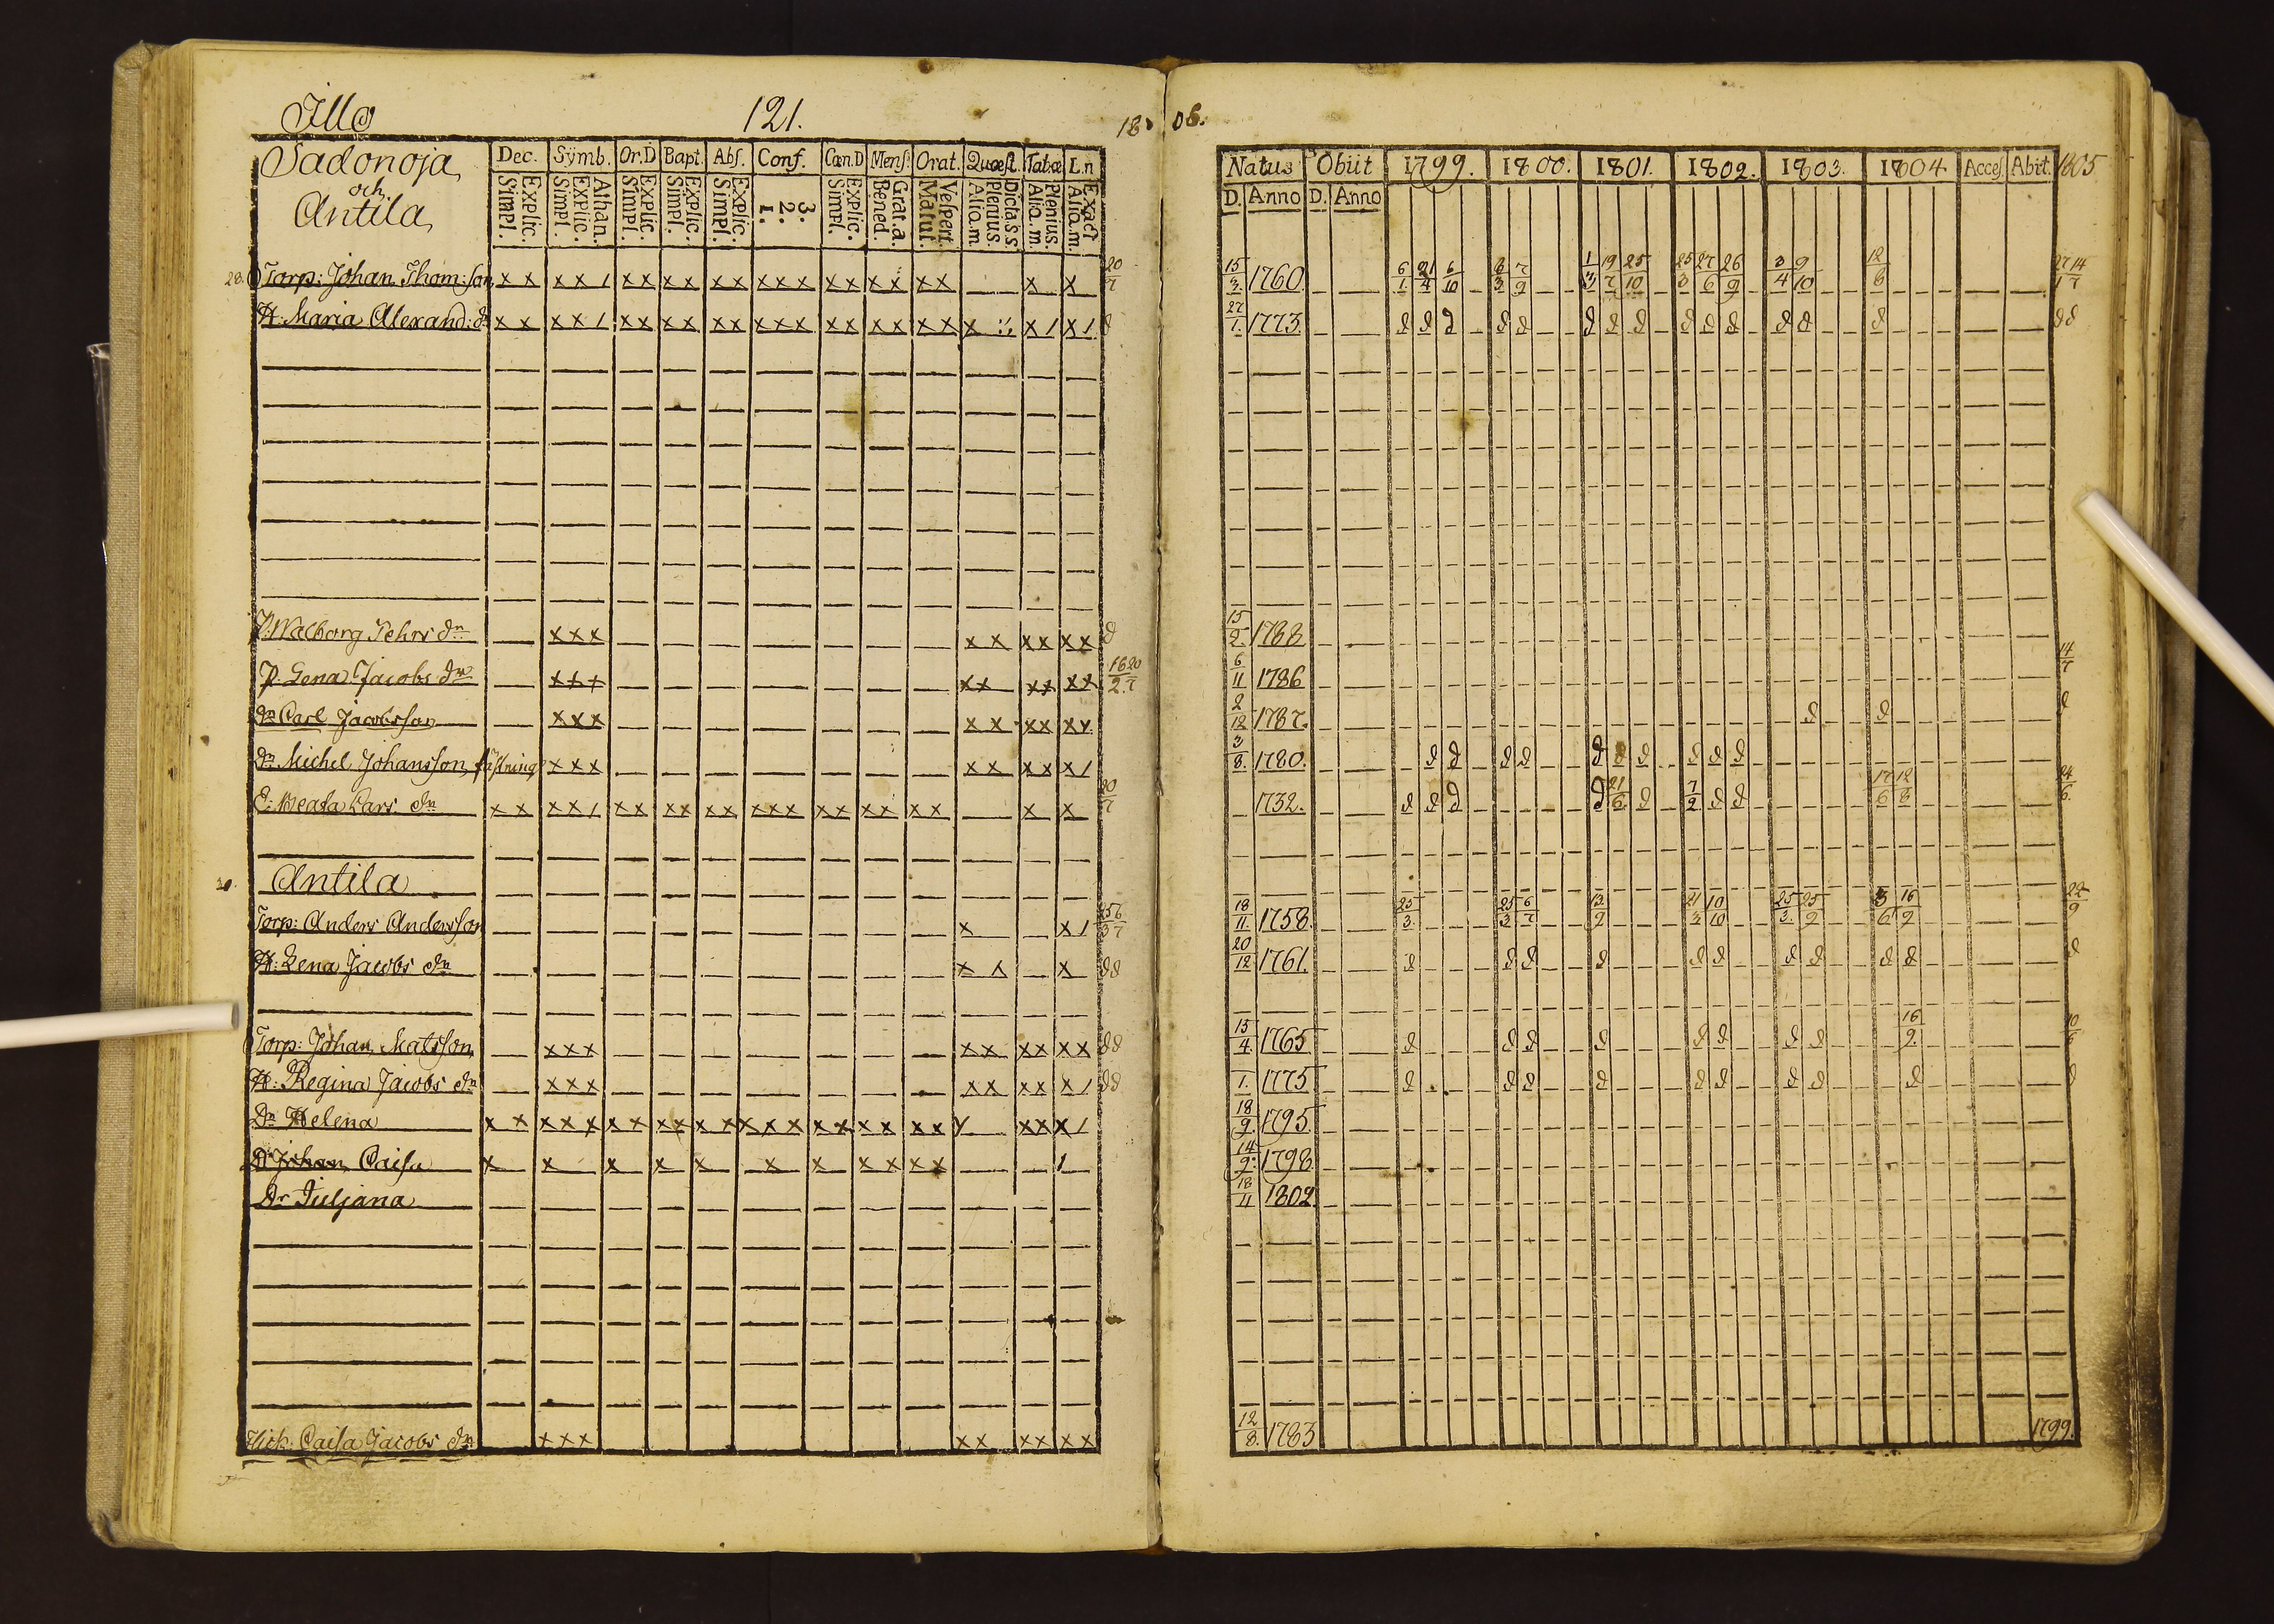 Illo 121. 18 06.
Sadonoja
och
Antila
Dec. Symb. Or.D Bapt. Abs. Conf. Cœn.D Mens. Orat. Quæst. Tabæ L.n
Simpl. Explic. Simpl. Explic. Athan. Simpl. Explic. Simpl. Explic. Simpl. Explic. 1. 2. 3. Simpl. Explic. Bened. Grat.a. Matut. Vespert. Alio.m. Plenius. Dicta.s.s. Alio.m. Plenius. Alio.m. Exact
Natus Obiit 1799. 1800. 1801. 1802. 1803. 1804 Acces. Abit. 1805
D. Anno D. Anno
28 Torp: Johan Thom:son x x x x 1 x x x x x x x x x x x x x x x x x 20/7 15/3 1760. 6/1 21/4 6/10 7/9 1/3 19/7 25/10 25/3 27/6 26/9 3/4 9/10 12/8 27/1 14/7
H: Maria Alexand: dr x x x x 1 x x x x x x x x x x x x x x x x x 1 x 1 d 27/1. 1773. d d d d d d d d d d d d d d d d
P. Walborg Pehrs dr x x x x x x x x x d 15/2. 1788
P. Lena Jacobs dr x x x x x x x x x 16/2 20/7 6/11 1786 14/7
dr Carl Jacobsson x x x x x x x x x 2/12 1787. d d d
dr Michel Johansson x x x x x x x x 1 3/8. 1780. d d d d d d d d d d
E: Beata Lars dr x x x x 1 x x x x x x x x x x x x x x x x x 20/7 1732. d d d d 21/6 d 7/2 d d 17/6 12/8 24/6.
Antila
Torp: Anders Andersson x x 1 25/3 6/7 18/11. 1758. 25/3. 25/3 6/7 13/9 21/3 10/10 25/3. 25/9 3/6 16/9 22/9
H: Lena Jacobs dr x x x d d 20/12 1761. d d d d d d d d d d d
Torp: Johan Matsson x x x x x x x x x d d 15/4. 1765 d d d d d d d d 16/9. 10/6
H: Regina Jacobs dr x x x x x x x x 1 d d 1. 1775 d d d d d d d d d d
Dr Helena x x x x x x x x x x x x x x x x x x x x x x x 1 18/9. 1795.
Dr Johan Caisa x x x x x x x x x x x 1 14/9. 1798
Dr Juljana 18/11 1802.
Pick: Caisa Jacobs dr x x x x x x x x x 12/8. 1783 1799.